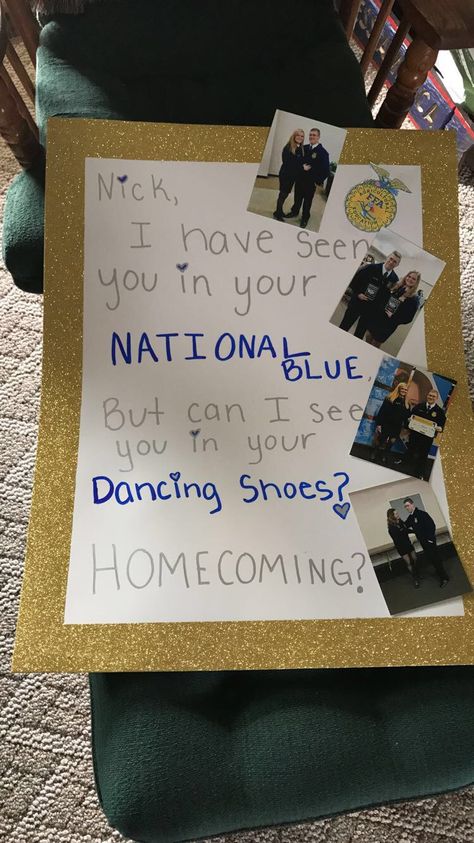 Nick,
I have seen
you in your
NATIONAL
BLUE.
But can I see
you in your
Dancing Shoes?
HOMECOMING?
FFA